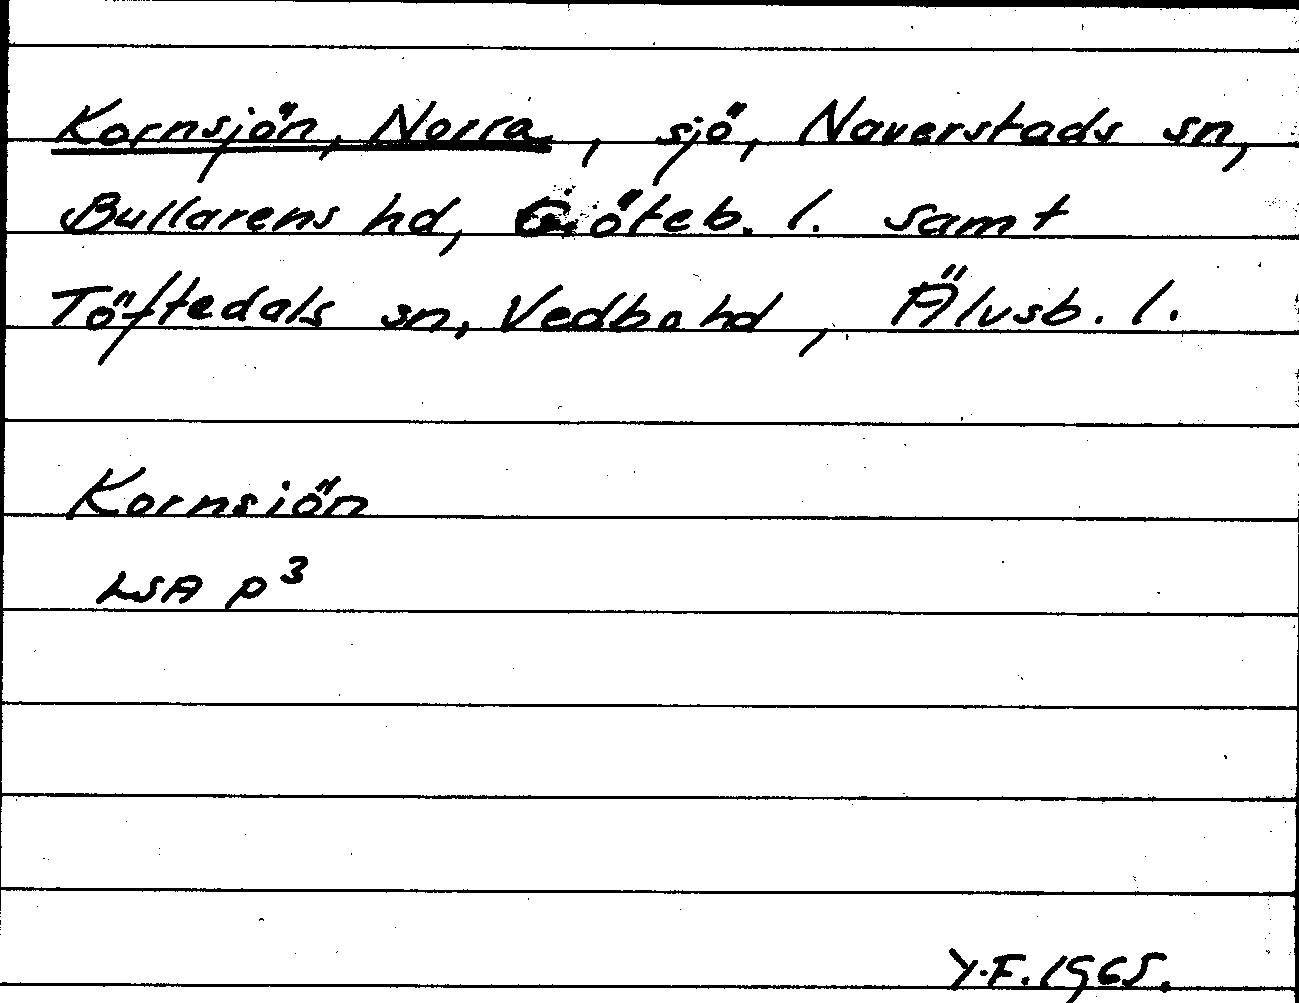 Kornsjön, Norra, sjö, Naverstads sn,
Bullarens hd, Göteb. l. samt
Töftedals sn, Vedbo hd, Älvsb. l.
Kornsiön
LSA p³
Y.F. 1965.